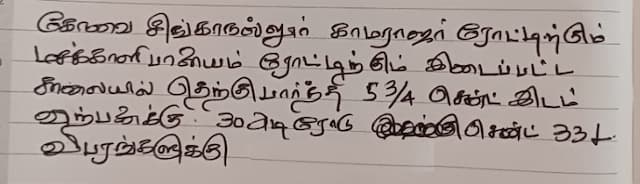 கோவை சிங்காநல்லூர் காமராஜர் ரோட்டிற்கும்
மசக்காளிபாளையம் ரோட்டிற்கும் இடைப்பட்ட
சாலையில் தெற்கு பார்த்த 5 3/4 செண்ட் இடம்
விற்பனைக்கு. 30 அடி ரோடு செண்ட் 33 L
விபரங்களுக்கு